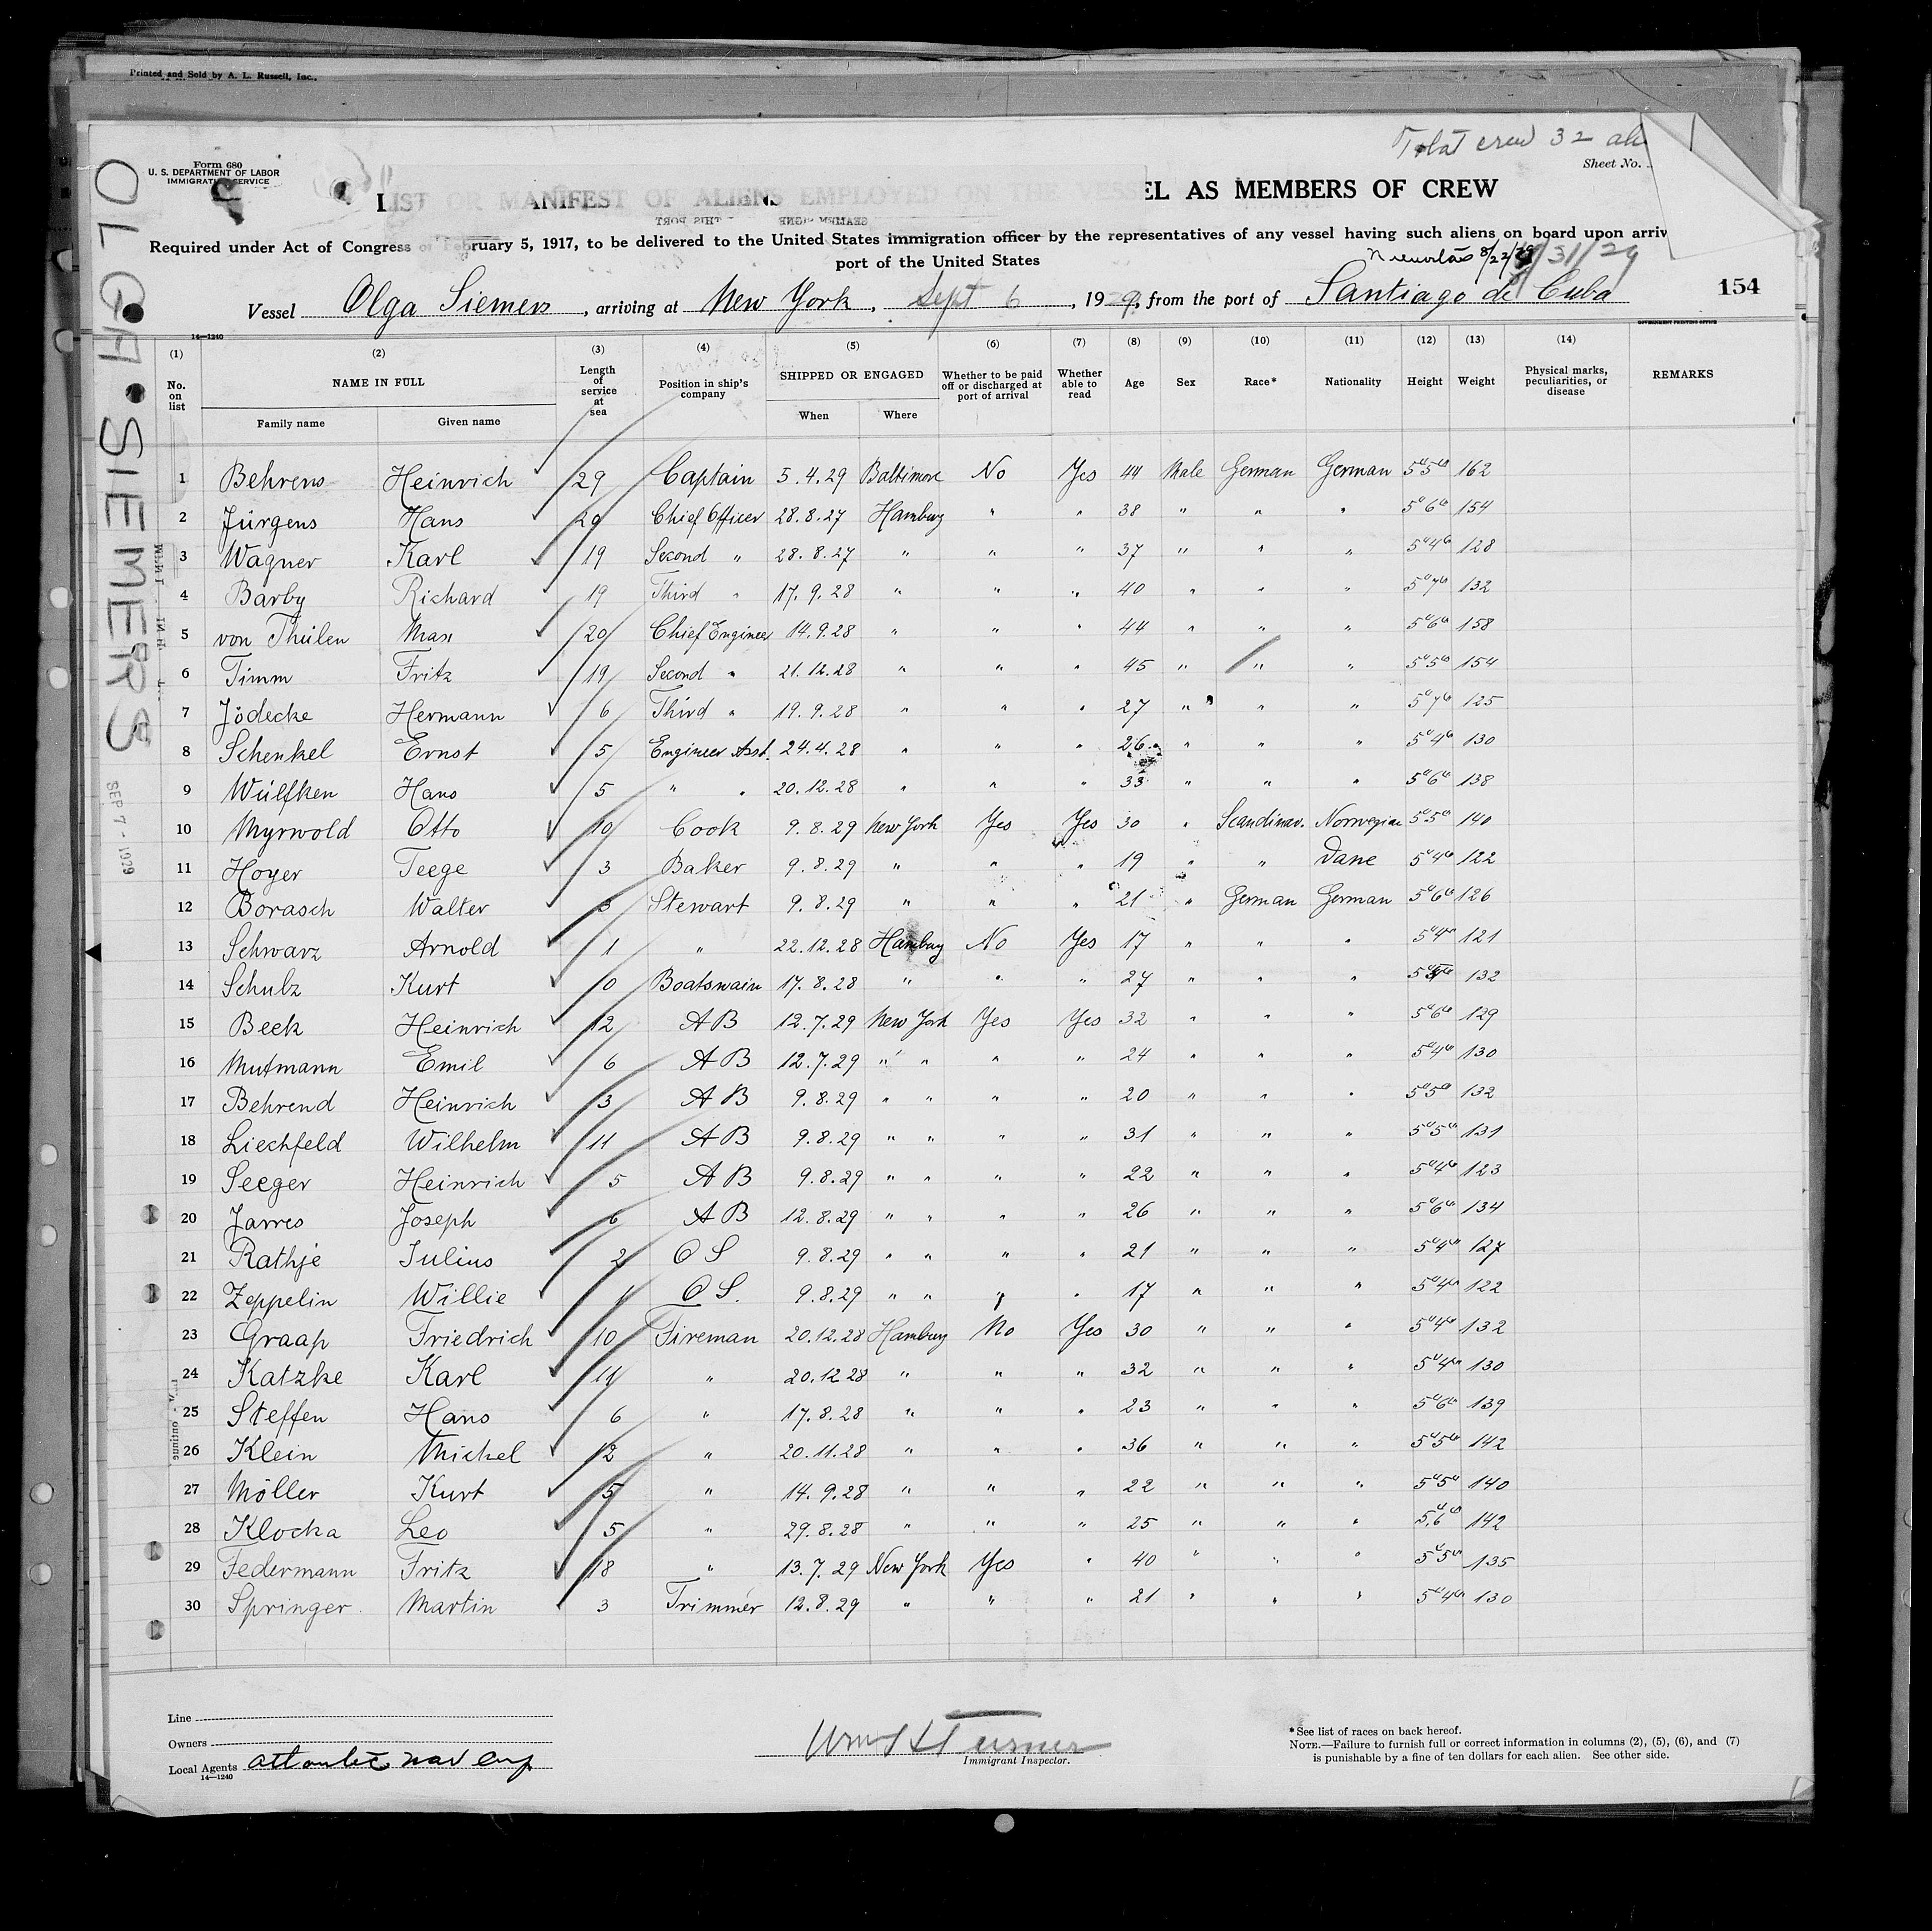 Printed and Sold by A. L. Russell, Inc.
Total crew 32
Form 680
U. S. DEPARTMENT OF LABOR
IMMIGRATION SERVICE
Sheet No.
LIST OR MANIFEST OF ALIENS EMPLOYED ON THE VESSEL AS MEMBERS OF CREW
Required under Act of Congress of February 5, 1917, to be delivered to the United States immigration officer by the representatives of any vessel having such aliens on board upon arriv
port of the United States
8/22/29 31/29
Vessel Olga Siemers, arriving at New York, Sept 6, 1929, from the port of Santiago de Cuba 154
OLGA SIEMERS
SEP 7 - 1929
14—1240
(1) (2) (3) (4) (5) (6) (7) (8) (9) (10) (11) (12) (13) (14)
No. on list NAME IN FULL Length of service at sea Position in ship's company SHIPPED OR ENGAGED Whether to be paid off or discharged at port of arrival Whether able to read Age Sex Race* Nationality Height Weight Physical marks, peculiarities, or disease REMARKS
Family name Given name When Where
GOVERNMENT PRINTING OFFICE
1 Behrens Heinrich 29 Captain 5.4.29 Baltimore No Yes 44 Male German German 5"5" 162
2 Jürgens Hans 20 Chief Officer 28.8.27 Hamburg " " 38 " " " 5"6" 154
3 Wagner Karl 19 Second " 28.8.27 " " " 37 " " " 5"4" 128
4 Barby Richard 19 Third " 17.9.28 " " " 40 " " " 5"7" 132
5 von Thülen Max 20 Chief Engineer 14.9.28 " " " 44 " " " 5"6" 158
6 Timm Fritz 19 Second " 21.12.28 " " " 45 " " " 5"5" 154
7 Jödecke Hermann 6 Third " 19.9.28 " " " 27 " " " 5"7" 125
8 Schenkel Ernst 5 Engineer Asst. 24.4.28 " " " 26 " " " 5"4" 130
9 Wülfken Hans 5 " " 20.12.28 " " " 33 " " " 5"6" 138
10 Myrwold Otto 10 Cook 9.8.29 New York Yes Yes 30 " Scandinav. Norwegian 5"5" 140
11 Hoyer Teege 3 Baker 9.8.29 " " " 19 " " Dane 5"4" 122
12 Borasch Walter 3 Stewart 9.8.29 " " " 21 " German German 5"6" 126
13 Schwarz Arnold 1 " 22.12.28 Hamburg No Yes 17 " " " 5"4" 121
14 Schulz Kurt 10 Boatswain 17.8.28 " " " 27 " " " 132
15 Beek Heinrich 12 AB 12.7.29 New York Yes Yes 32 " " " 5"6" 129
16 Mutmann Emil 6 AB 12.7.29 " " " " 24 " " " 5"4" 130
17 Behrend Heinrich 3 AB 9.8.29 " " " " 20 " " " 5"5" 132
18 Liechfeld Wilhelm 11 AB 9.8.29 " " " " 31 " " " 5"5" 131
19 Seeger Heinrich 5 AB 9.8.29 " " " " 22 " " " 5"4" 123
20 Jarres Joseph 6 AB 12.8.29 " " " " 26 " " " 5"6" 134
21 Rathje Julius 2 OS 9.8.29 " " " " 21 " " " 5"4" 127
22 Zeppelin Willie 1 OS. 9.8.29 " " " " 17 " " " 5"4" 122
23 Graap Friedrich 10 Fireman 20.12.28 Hamburg No Yes 30 " " " 5"4" 132
24 Katzke Karl 14 " 20.12.28 " " " 32 " " " 5"4" 130
25 Steffen Hans 6 " 17.8.28 " " " 23 " " " 5"6" 139
26 Klein Michel 12 " 20.11.28 " " " 36 " " " 5"5" 142
27 Möller Kurt 5 " 14.9.28 " " " 22 " " " 5"5" 140
28 Klocka Leo 5 " 29.8.28 " " " 25 " " " 5"6" 142
29 Federmann Fritz 18 " 13.7.29 New York Yes " 40 " " " 5"5" 135
30 Springer Martin 3 Trimmer 12.8.29 " " " 21 " " " 5"4" 130
Line
Owners
Local Agents Atlantic Nav Corp
14—1240
Immigrant Inspector.
*See list of races on back hereof.
NOTE.—Failure to furnish full or correct information in columns (2), (5), (6), and (7)
is punishable by a fine of ten dollars for each alien. See other side.